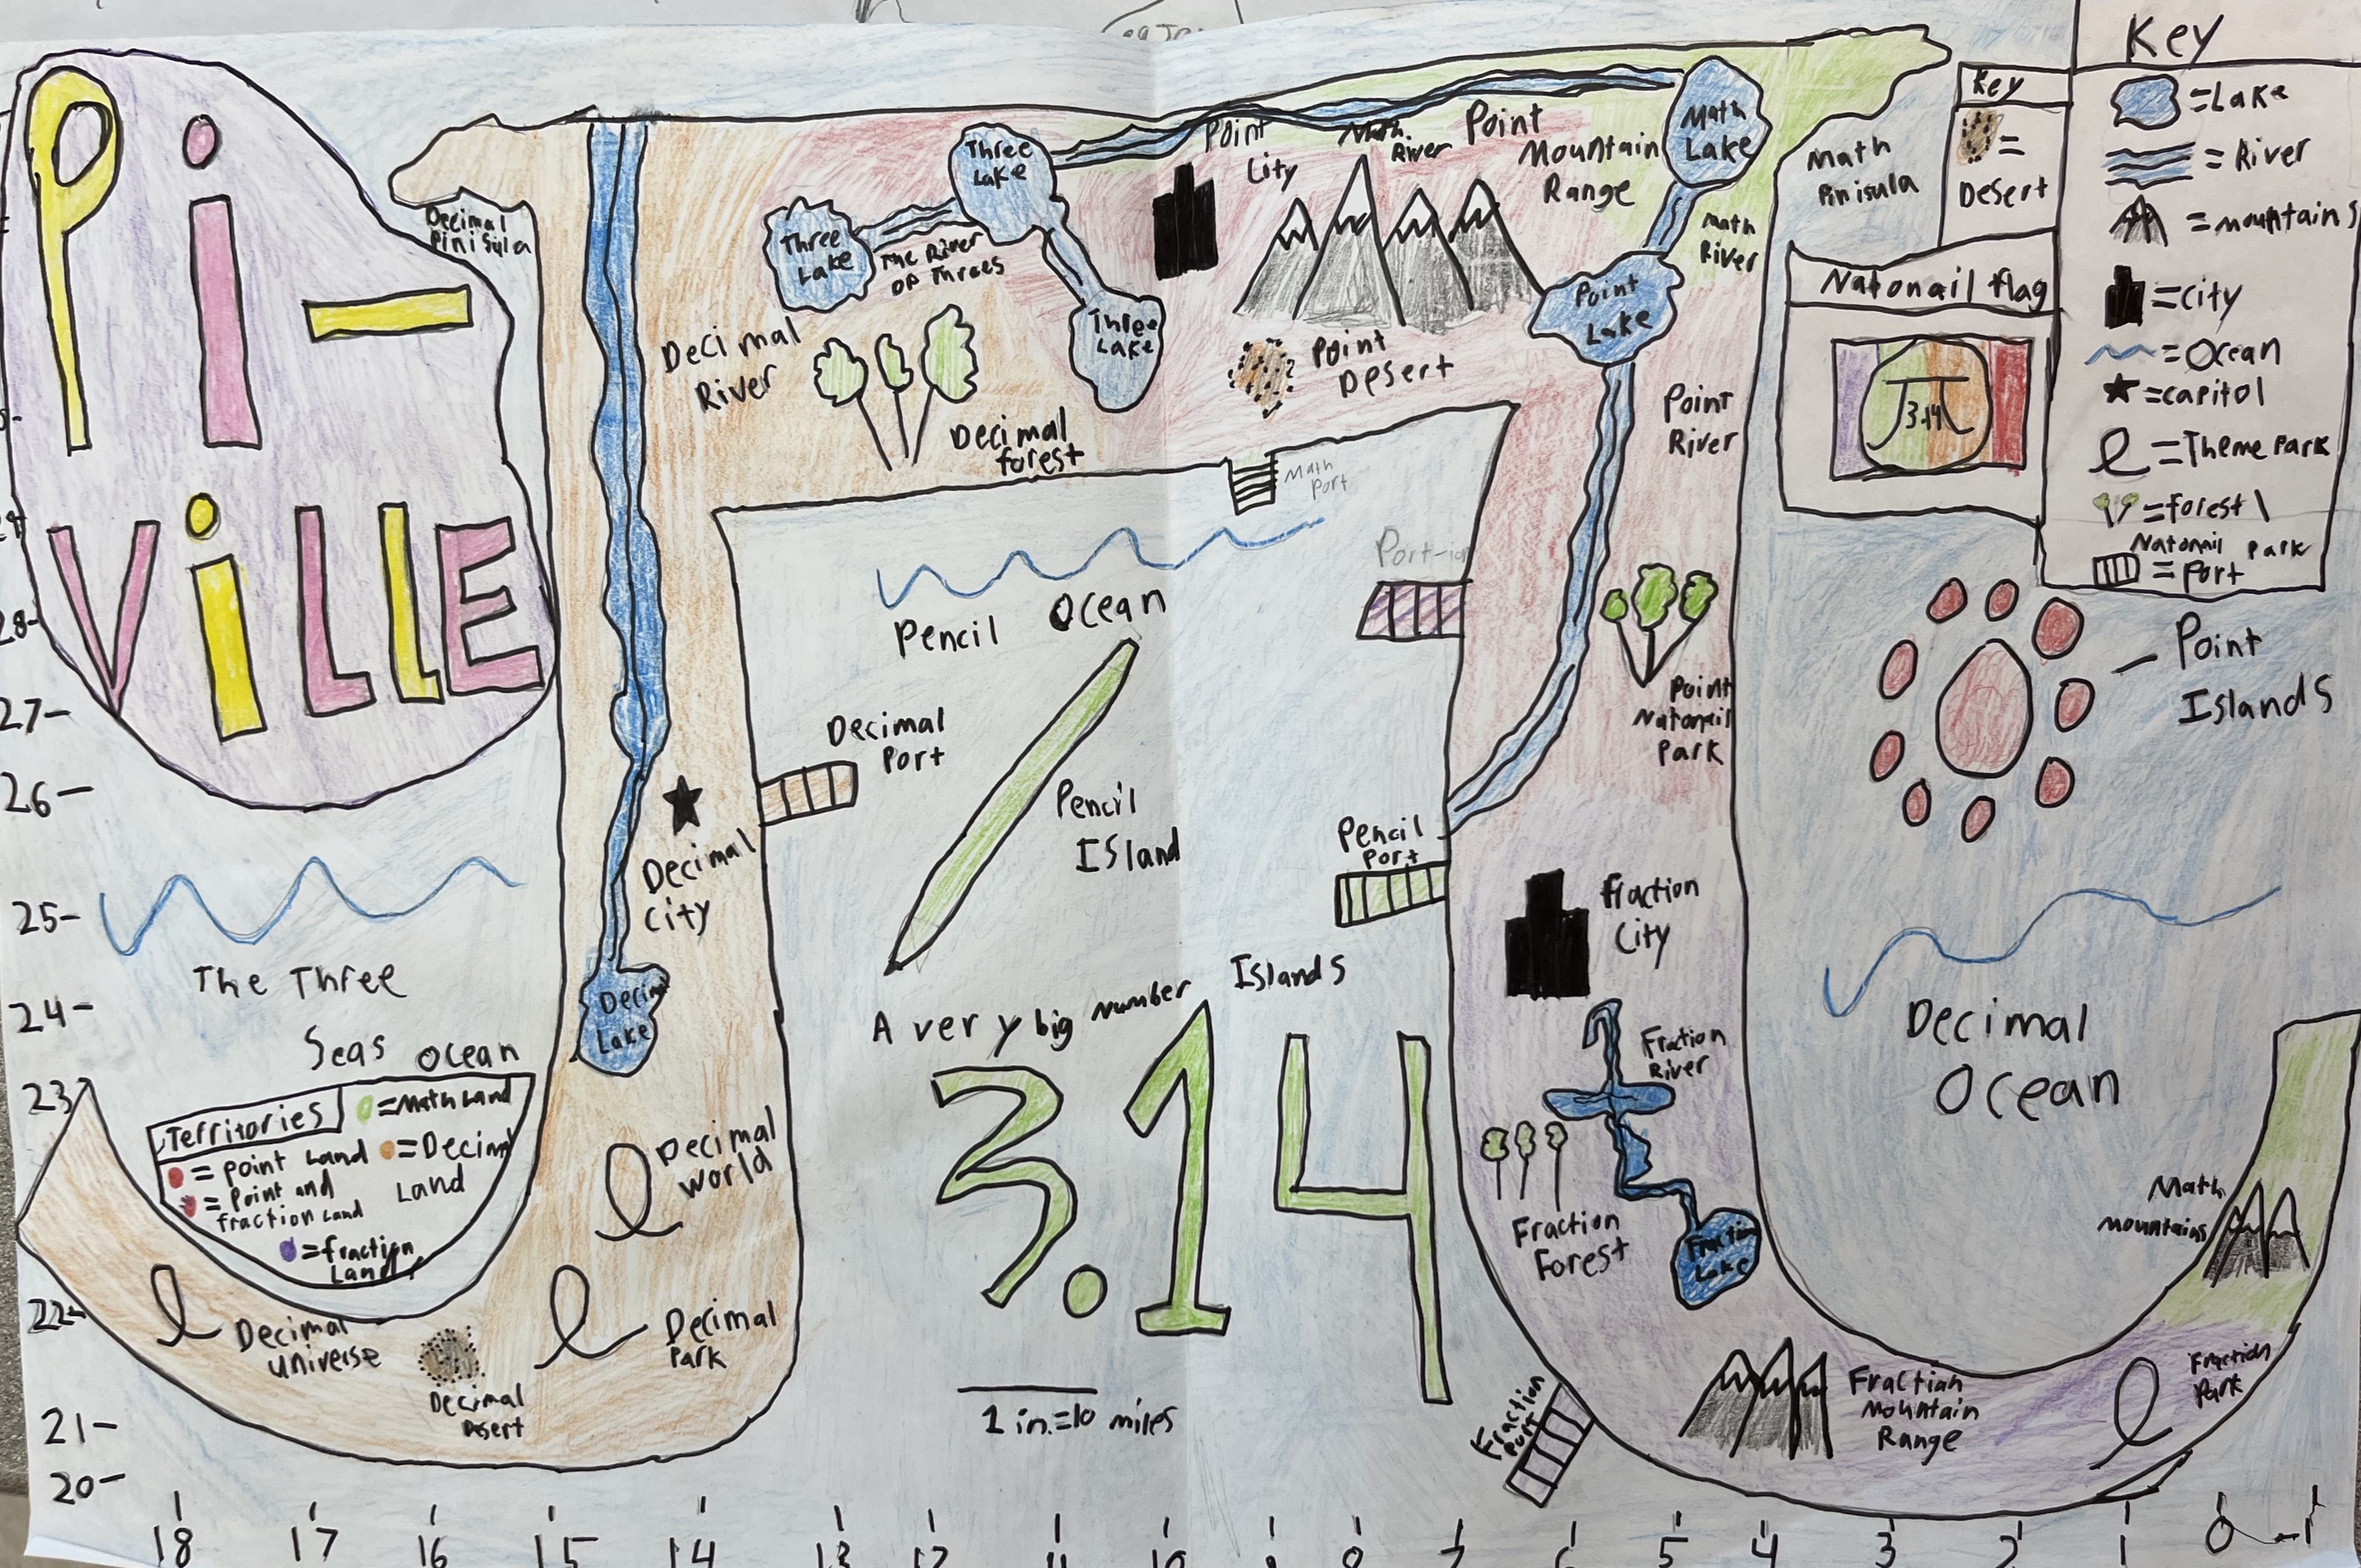 Pi-
ViLLE
Decimal
Pinisula
Decimal
River
Three
Lake
The River
of Threes
Three
Lake
Three
Lake
Decimal
forest
Point
City
Math
River
Point
Mountain
Range
Math
Lake
Math
River
Math
Pinisula
Point
Desert
Point
Lake
Point
River
Math
Port
Key
=
Desert
Key
=Lake
=River
=mountains
=city
=Ocean
=capitol
=Theme Park
=forest\
Natonail Park
=Port
Natonail flag
3.14
Pencil Ocean
Decimal
Port
Pencil
Island
Pencil
Port
Point
Natonail
Park
Point
Islands
Decimal
City
Decimal
Lake
fraction
City
Fraction
River
Fraction
Forest
Fraction
Lake
Decimal
Ocean
The Three
Seas Ocean
Territories
=Math Land
=Point Land
=Decimal
Land
=Point and
fraction Land
=fraction
Land
A very big number Islands
3.14
Decimal
World
Decimal
Park
Decimal
Universe
Decimal
Desert
1 in.=10 miles
Fraction
Port
Fraction
Mountain
Range
Fraction
Park
Math
mountains
28-
27-
26-
25-
24-
23
22-
21-
20-
18
17
16
15
14
13
12
11
10
7
6
5
4
3
2
1
0
-1